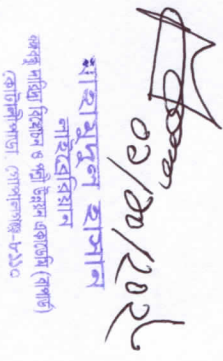 ০১/১০/২০২৫
মাহমুদুল হাসান
লাইব্রেরিয়ান
বঙ্গবন্ধু দারিদ্র্য বিমোচন ও পল্লী উন্নয়ন একাডেমি (বাপার্ড)
কোটালীপাড়া, গোপালগঞ্জ-৮১১০